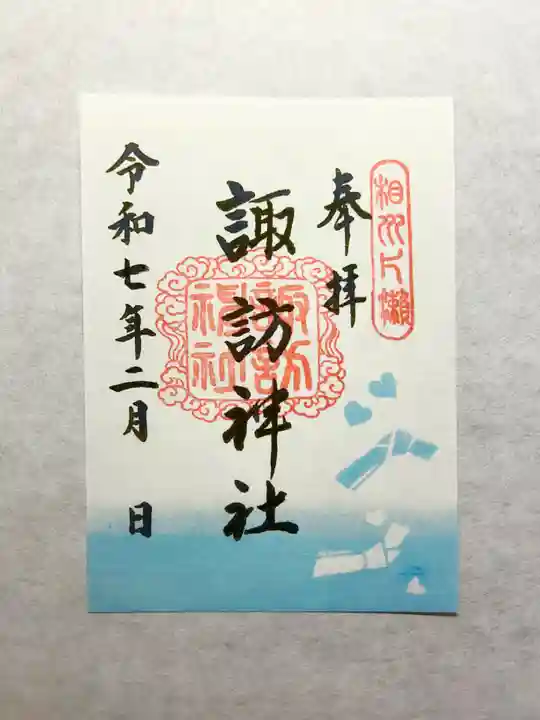 相州片瀬
奉拝
諏訪神社
諏訪神社
令和七年二月 日